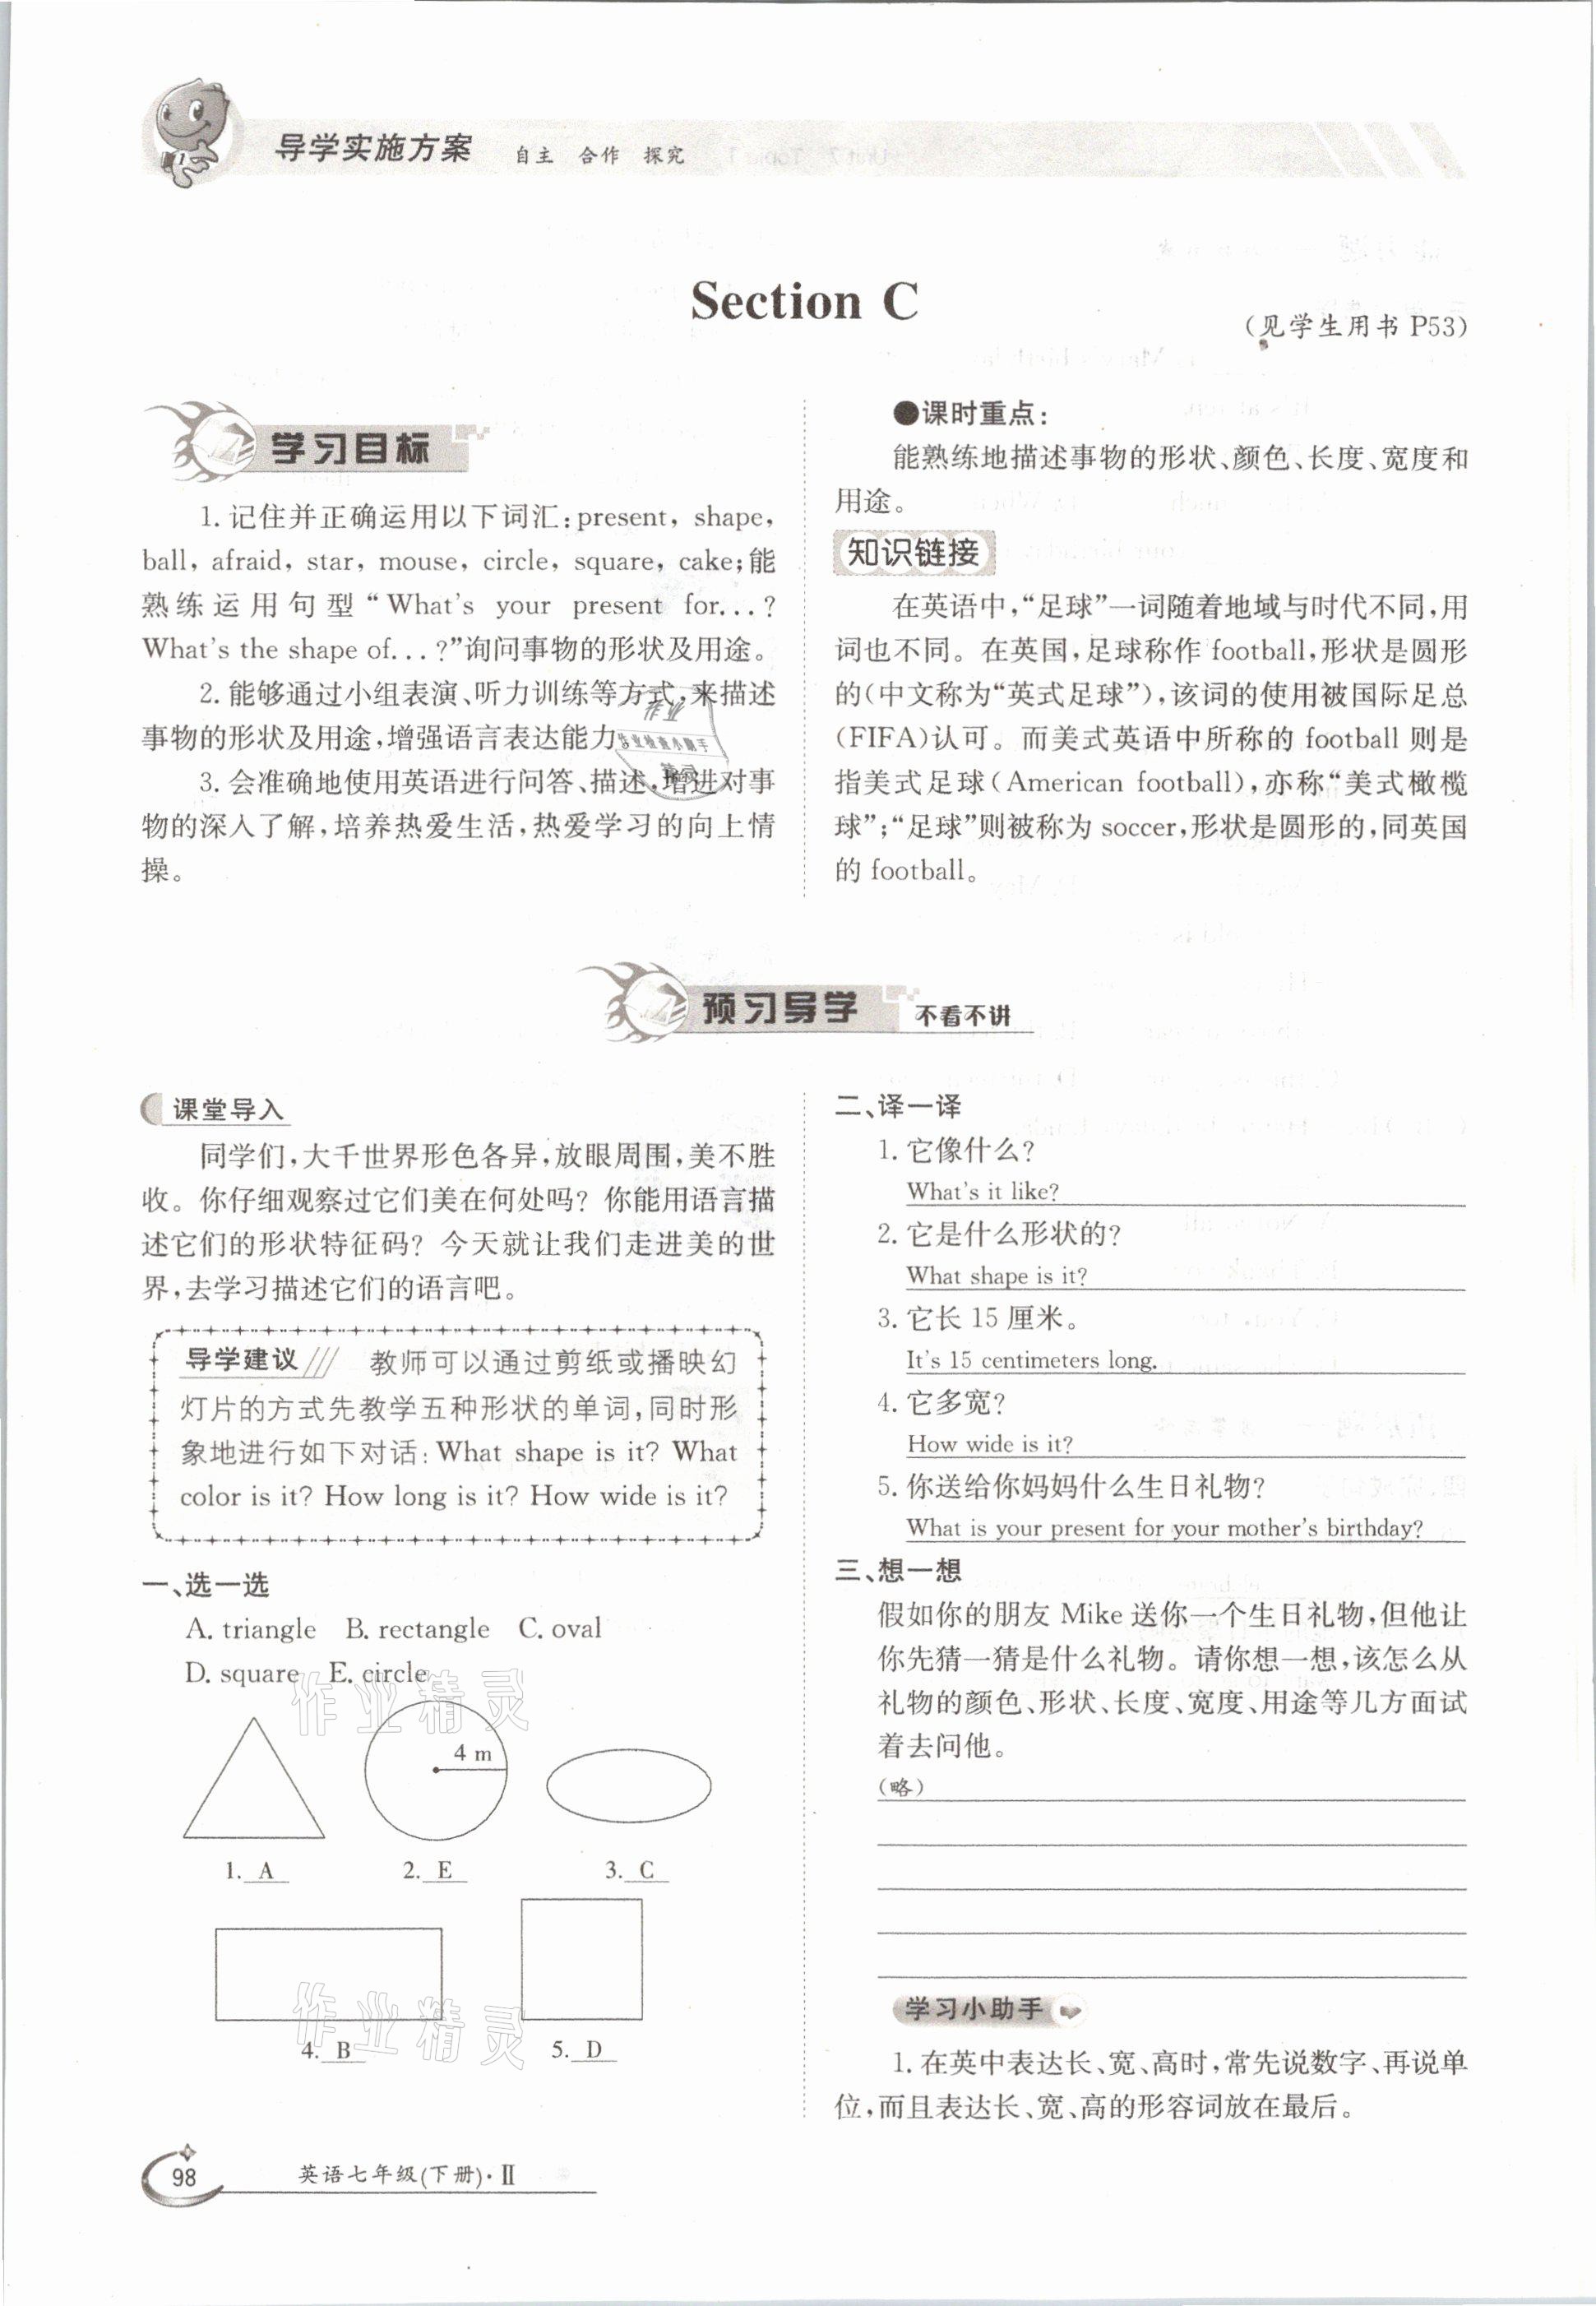 导学实施方案 自主 合作 探究
Section C
(见学生用书 P53)
学习目标
1. 记住并正确运用以下词汇:present, shape,
ball, afraid, star, mouse, circle, square, cake;能
熟练运用句型“What's your present for...?
What's the shape of...?”询问事物的形状及用途。
2. 能够通过小组表演、听力训练等方式,来描述
事物的形状及用途,增强语言表达能力。
3. 会准确地使用英语进行问答、描述,增进对事
物的深入了解,培养热爱生活,热爱学习的向上情
操。
●课时重点:
能熟练地描述事物的形状、颜色、长度、宽度和
用途。
知识链接
在英语中,“足球”一词随着地域与时代不同,用
词也不同。在英国,足球称作 football,形状是圆形
的(中文称为“英式足球”),该词的使用被国际足总
(FIFA)认可。而美式英语中所称的 football 则是
指美式足球(American football),亦称“美式橄榄
球”;“足球”则被称为 soccer,形状是圆形的,同英国
的 football。
预习导学 不看不讲
课堂导入
同学们,大千世界形色各异,放眼周围,美不胜
收。你仔细观察过它们美在何处吗? 你能用语言描
述它们的形状特征码? 今天就让我们走进美的世
界,去学习描述它们的语言吧。
导学建议 教师可以通过剪纸或播映幻
灯片的方式先教学五种形状的单词,同时形
象地进行如下对话:What shape is it? What
color is it? How long is it? How wide is it?
一、选一选
A. triangle B. rectangle C. oval
D. square E. circle
4 m
1. A 2. E 3. C
4. B 5. D
二、译一译
1. 它像什么?
What's it like?
2. 它是什么形状的?
What shape is it?
3. 它长 15 厘米。
It's 15 centimeters long.
4. 它多宽?
How wide is it?
5. 你送给你妈妈什么生日礼物?
What is your present for your mother's birthday?
三、想一想
假如你的朋友 Mike 送你一个生日礼物,但他让
你先猜一猜是什么礼物。请你想一想,该怎么从
礼物的颜色、形状、长度、宽度、用途等几方面试
着去问他。
(略)
学习小助手
1. 在英中表达长、宽、高时,常先说数字、再说单
位,而且表达长、宽、高的形容词放在最后。
98 英语七年级(下册)·Ⅱ
作业精灵
作业精灵
作业
作业检查小助手
精灵